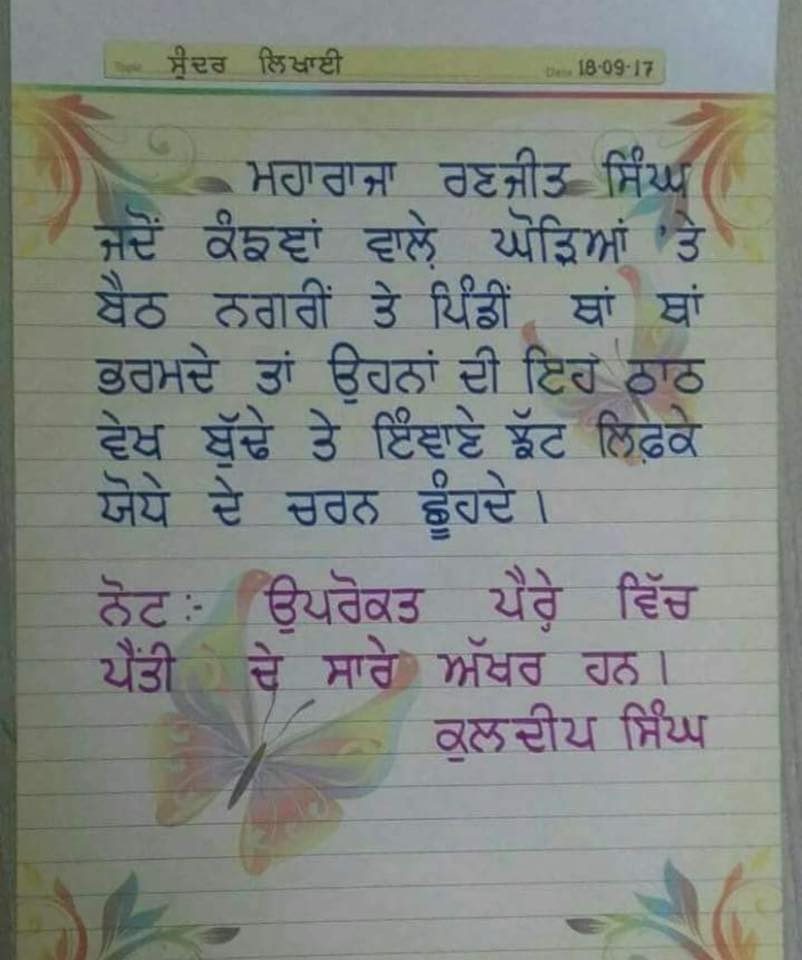 Topic ਸੁੰਦਰ ਲਿਖਾਈ Date 18-09-17
ਮਹਾਰਾਜਾ ਰਣਜੀਤ ਸਿੰਘ
ਜਦੋਂ ਕੰਙਣਾਂ ਵਾਲ਼ੇ ਘੋੜਿਆਂ 'ਤੇ
ਬੈਠ ਨਗਰੀਂ ਤੇ ਪਿੰਡੀਂ ਥਾਂ ਥਾਂ
ਭਰਮਦੇ ਤਾਂ ਉਹਨਾਂ ਦੀ ਇਹ ਠਾਠ
ਵੇਖ ਬੁੱਢੇ ਤੇ ਇੰਞਾਣੇ ਝੱਟ ਲਿਫ਼ਕੇ
ਯੋਧੇ ਦੇ ਚਰਨ ਛੂੰਹਦੇ।
ਨੋਟ :- ਉਪਰੋਕਤ ਪੈਰ੍ਹੇ ਵਿੱਚ
ਪੈਂਤੀ ਦੇ ਸਾਰੇ ਅੱਖਰ ਹਨ।
ਕੁਲਦੀਪ ਸਿੰਘ